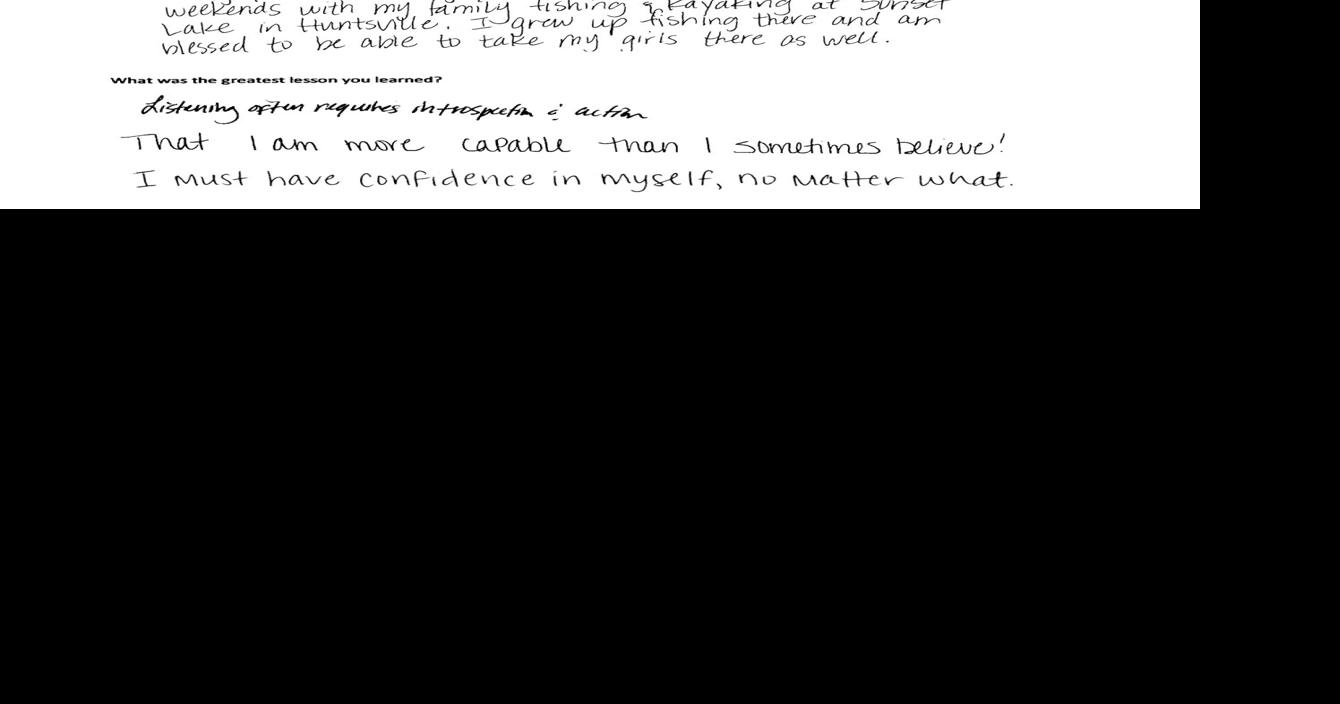 weekends with my family fishing & kayaking at Sunset
Lake in Huntsville. I grew up fishing there and am
blessed to be able to take my girls there as well.
What was the greatest lesson you learned?
Listening often requires introspection & action
That I am more capable than I sometimes believe!
I must have confidence in myself, no matter what.